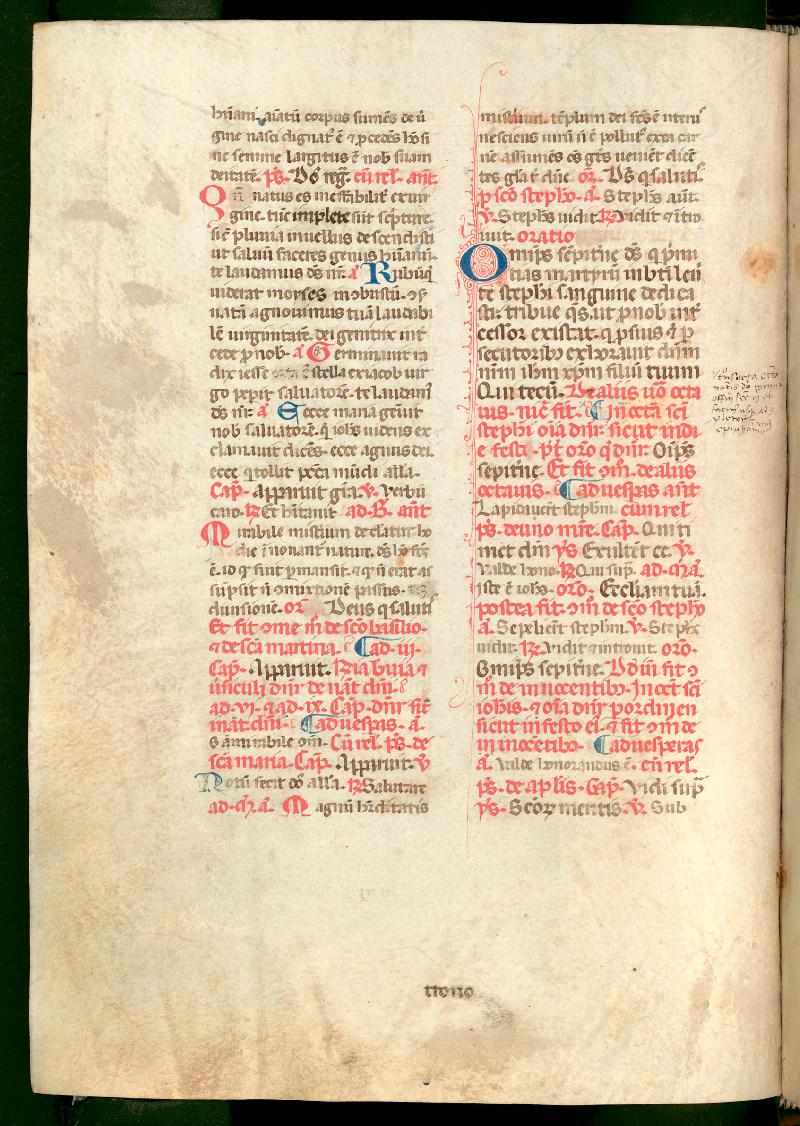 humani. aiatū corpus sumēs de ū
gine nasci dignat' ē ⁊ ꝓcedēs hō si
ne semine largitus ē nob suam
deitatē. ps. Dō reg. cū rel. ant.
Qn̄ natus es ineffabilit' ex uir
gine. tūc implete sūt sc̄pture.
sic̄ pluuia in uellus descendisti
ut saluū faceres genus humanū.
te laudamus ds nr̄. a Rubū q̄
uiderat moyses incōbustū. ɔ̄s
uatā agnouimus tuā laudabi
lē uirginitatē. dei genitrix int̄
cede ꝑ nob. a Germinauit ra
dix iesse orta ē stella ex iacob uir
go peꝑit saluatorē. te laudam'
ds nr̄. a Ecce maria genuit
nob saluatorē. quē iohs uidens ex
clamauit dicēs. ecce agnus dei.
ecce qui tollit pctā mūdi alla.
Cap. Apparuit gr̄a. v. Verbū
caro. R Et hītauit. ad B. ant
Mirabile misterium declarat' ho
die īnouant' nature. ds hō fcs
ē. id qd fuit ꝑmansit. ⁊ qd nō erat as
supsit nō ɔmixtionē passus. neq̄
diuisionē. or̄. Deus qui saluti
Et fit ɔme m̄ de scō basilio.
⁊ de scā martina. Cad .iij.
Cap. Apparuit. R̄ia breuia ⁊
usiculi dn̄r de nāt dn̄i.
ad .vj. ⁊ ad .ix. Cap. dn̄r sic̄
in nāt dn̄i. Cad uespas. a.
O admirabile ɔm̄. Cū rel. ps. de
scā maria. Cap. Apparuit. v
Notū fecit do' alla. R Salutare
ad .m̄. a. Magnū hereditatis
misterium. tēplum dei fcs ē uterus
nesciens uirū nō ē pollut' ex ea car
nē assumēs oēs gētes uenient dicē
tes gl'a t' dn̄e. or̄. Ds qui saluti.
ꝓ scō stepho. a. Stephs aut.
v. Stephs uidit R Vidit ⁊ ītro
iuit. oratio
Omīps sēpit'ne ds qui pmi
tias martyrū in bti leui
te stephi sanguine dedica
sti. tribue qs. ut ꝓ nob int'
cessor existat. qui ꝓ suis ⁊ ꝑ
secutorib3 exorauit dn̄m
nr̄m ihm xpm filiū tuum
Qui tecū. De aliis uō octa
uis. nic̄ fit. C In octā scī
stephi oīa dn̄r sicut in di
e festi. pt orō q̄ dr̄ Oīps
sepitne. Et fit ɔm̄. de aliis
octauis. Cad uespas ant
Lapidauert stephm. cum rel
ps. de uno mre. Cap. Qui ti
met dm̄ ys Exultet ce. v.
Valde hono. R Qui sup. ad .m̄. a.
iste ē iohs. orō. Ecclīam tuā.
postea fit ɔm̄ de scō stepho
a. Sepeliert stephm. v. Stephs
uidit. R. Vidit ⁊ introiut. orō.
Omīps sepitne. Dein fit ɔ
m̄ de innocentib3. In oct' scī
iohis. ⁊ oīa dn̄r ꝑ ordinem
sicut in festo ei'. ⁊ fit ɔm̄ de
in innocētib3. Cad uesperas
a. Valde honorandus ē. cū rel.
ps. de aplis. Cap. Vidi sup̄
ys. Scōꝝ meritis. v. Sub
ttono